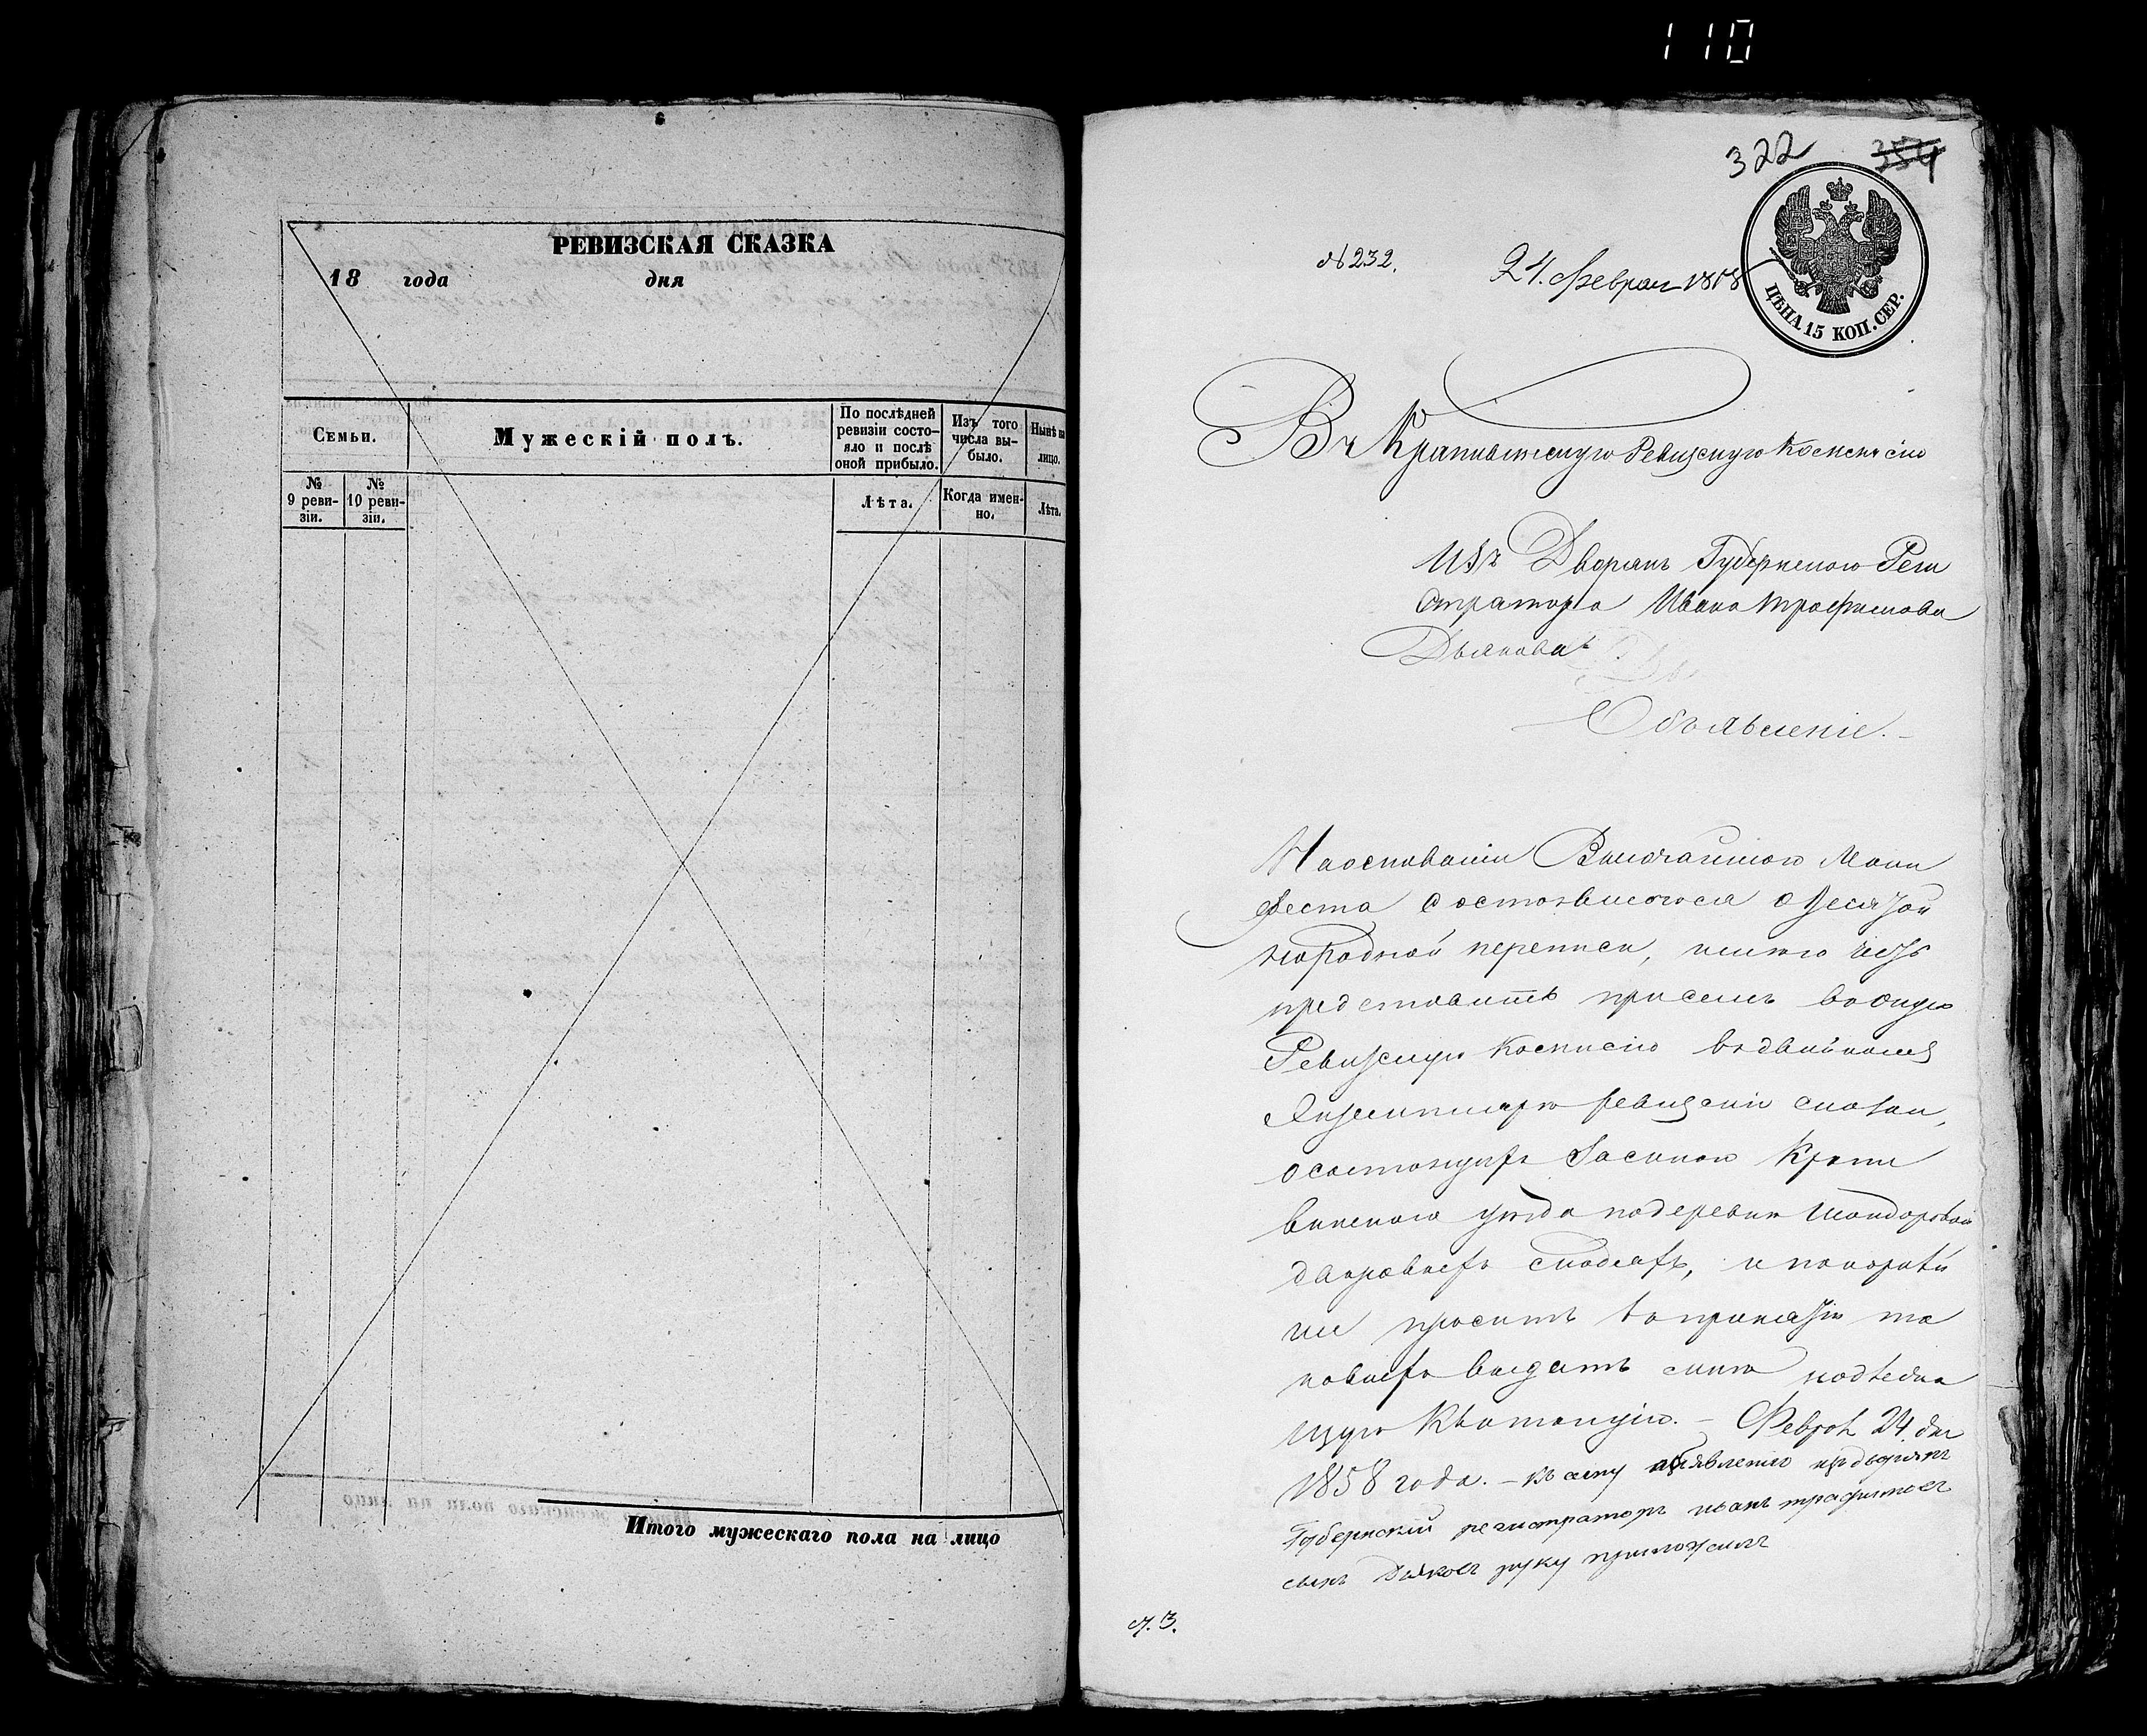 110
РЕВИЗСКАЯ СКАЗКА
18 года дня
Семьи.
Мужескій полъ.
По послѣдней
ревизіи состо-
яло и послѣ
оной прибыло.
Изъ того
числа вы-
было.
Нынѣ на
лицо.
№
9 реви-
зіи.
№
10 реви-
зіи.
Лѣта.
Когда имен-
но.
Лѣта.
Итого мужескаго пола на лицо
322
354
№ 232.
24. Феврал 1858
ЦѢНА 15 КОП. СЕР.
Въ Крапивенскую Ревизскую Коммисію
Изъ Дворянъ Губернскаго Реги
стратора Ивана Трофимова
Дьякова
Объявленіе.
На основаніи Высочайшаго Мани
феста состоявшагося о десятой
народной переписи, имѣю честь
представить при семъ въ оную
Ревизскую Коммисію въ двойномъ
Экземпляре ревизскіе сказки,
о состоящихъ за мною Крапи
венскаго уезда
дворовыхъ людяхъ, и покорнѣй
ше просить въ принятіи та
ковыхъ выдать мнѣ надлежа
щую Квитанцію. — Февраль 24 дня
1858 года. — къ сему объявленію издворянъ
Губернский регистраторъ иванъ трафимовъ
сынъ Дьяковъ руку приложилъ